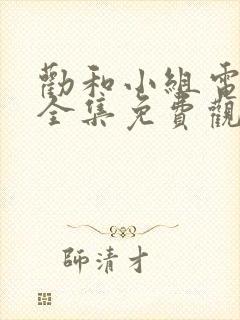 勸和小組電
全集免費觀
師清才